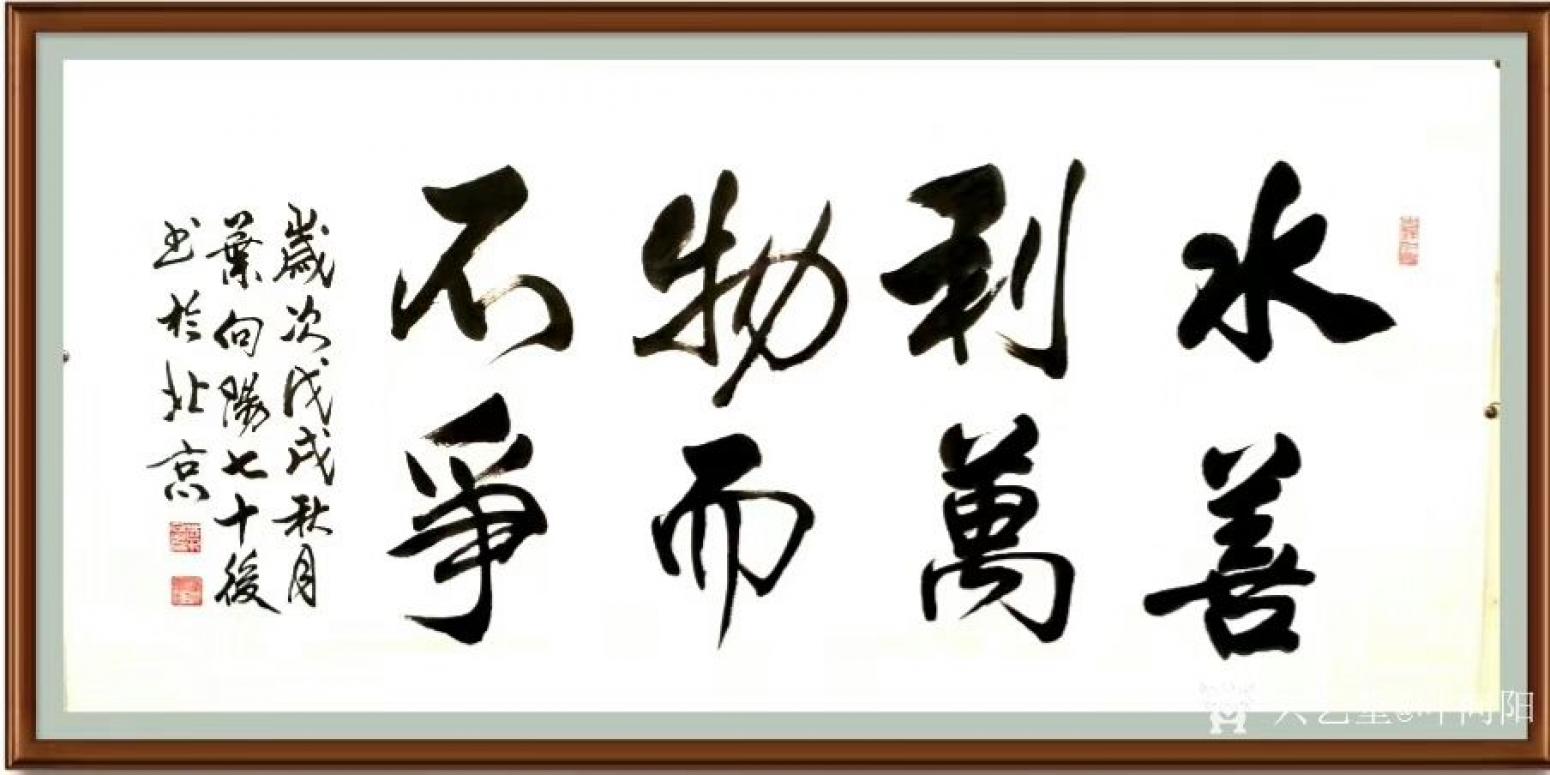 水善
利萬
物而
不爭
歲次戊戌秋月
葉向陽七十後
书於北京